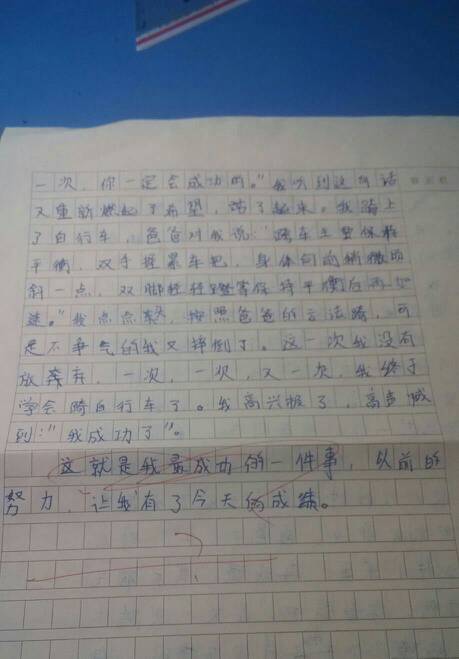 一次，你一定会成功的。"我听到这句话
又重新燃起了希望，站了起来。我踏上
了自行车，爸爸对我说："骑车主要保持
平衡，双手握紧车把，身体向前稍微的
斜一点，双脚轻轻蹬等保持平衡后再加
速。"我点点头，按照爸爸的方法骑，可
是不争气的我又摔倒了。这一次我没有
放弃，一次，一次，又一次，我终于
学会骑自行车了。我高兴极了，高声喊
到："我成功了"。
这就是我最成功的一件事，以前的
努力，让我有了今天的成绩。